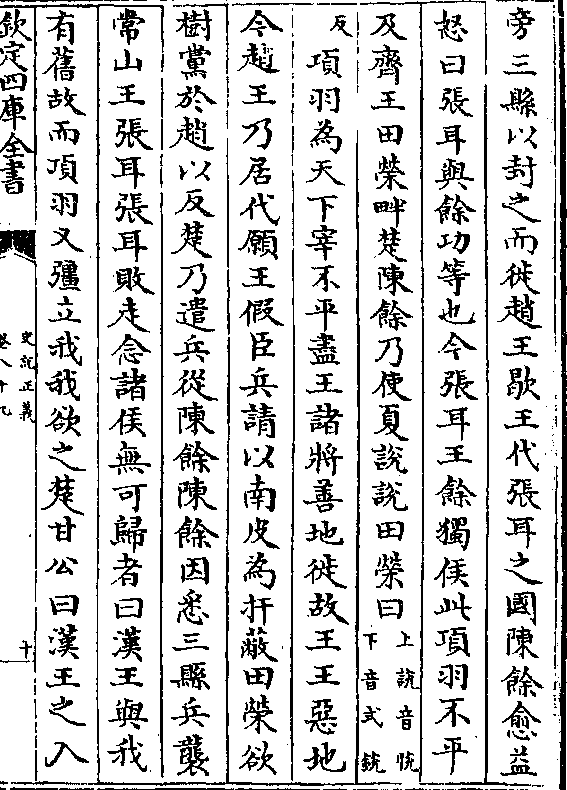 旁三縣以封之而徙趙王歇王代張耳之國陳餘愈益
怒曰張耳與餘功等也今張耳王餘獨侯此項羽不平
及齊王田榮畔楚陳餘乃使夏說說田榮曰上說音悅下音式銳
反項羽為天下宰不平盡王諸將善地徙故王王惡地
今趙王乃居代願王假臣兵請以南皮為扞蔽田榮欲
樹黨於趙以反楚乃遣兵從陳餘陳餘因悉三縣兵襲
常山王張耳張耳敗走念諸侯無可歸者曰漢王與我
有舊故而項羽又彊立我我欲之楚甘公曰漢王之入
欽定四庫全書
史記正義
卷八十九
十